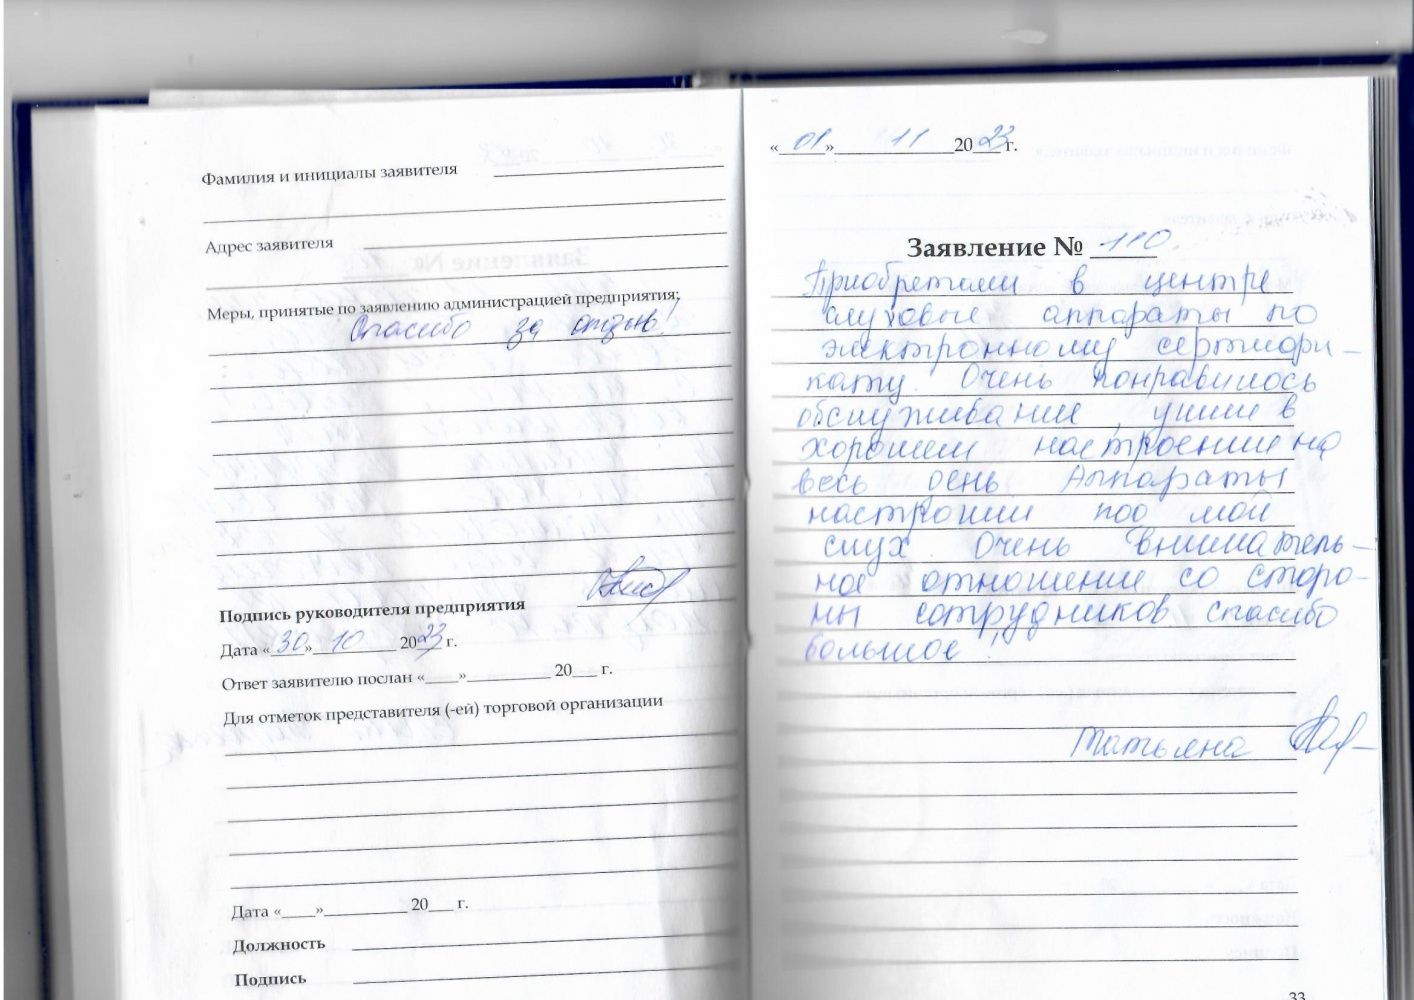 Фамилия и инициалы заявителя
Адрес заявителя
Меры, принятые по заявлению администрацией предприятия:
Спасибо за отзыв!
Подпись руководителя предприятия
Дата «30» 10 2023 г.
Ответ заявителю послан «____»__________ 20___ г.
Для отметок представителя (-ей) торговой организации
Дата «____»__________ 20___ г.
Должность
Подпись
«01» 11 2023 г.
Заявление № 110
Приобретали в центре
слуховые аппараты по
электронному сертифи-
кату. Очень понравилось
обслуживание, ушли в
хорошем настроении на
весь день. Аппараты
настроили под мой
слух. Очень вниматель-
ное отношение со сторо-
ны сотрудников спасибо
большое!
Татьяна
33